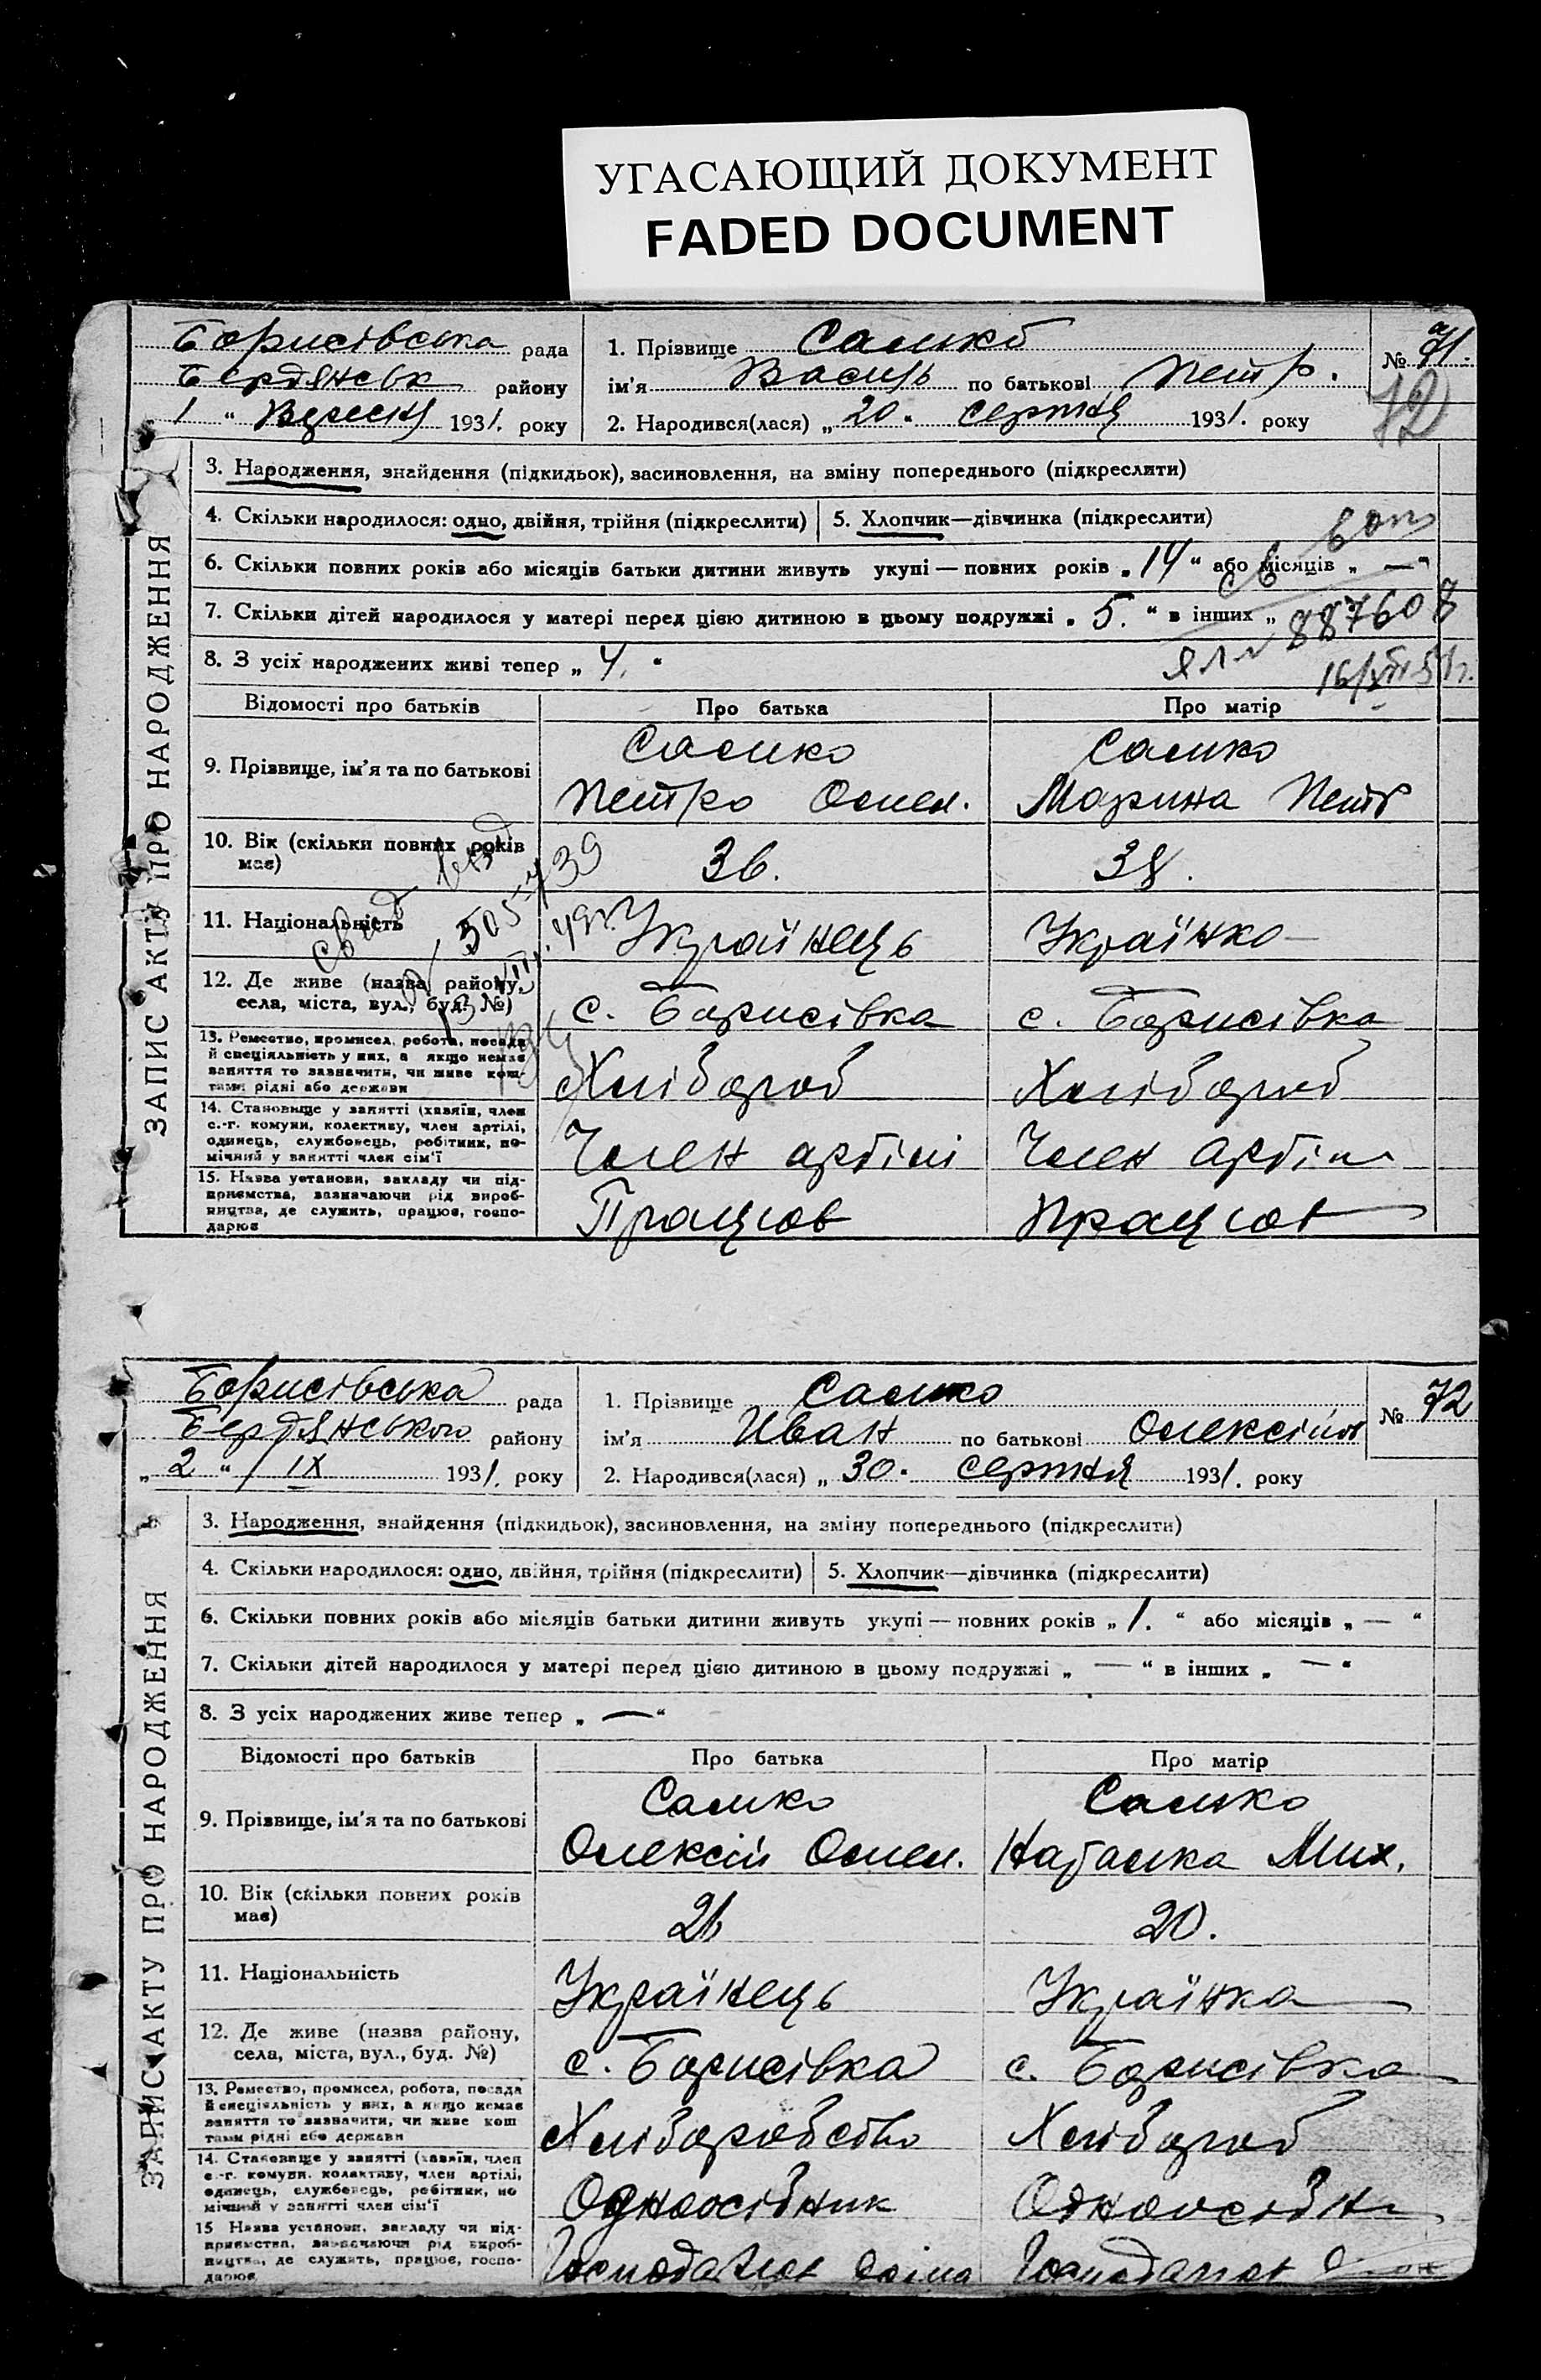 УГАСАЮЩИЙ ДОКУМЕНТ
FADED DOCUMENT
Борисівська рада
Бердянськ району
1 " Вересня 1931. року
1. Прізвище Самко
ім'я Василь по батькові Петр.
2. Народився(лася) „ 20 " серпня 1931. року
№ 71.
72
ЗАПИС АКТУ ПРО НАРОДЖЕННЯ
3. Народження, знайдення (підкидьок), засиновлення, на зміну попереднього (підкреслити)
4. Скільки народилося: одно, двійня, трійня (підкреслити) 5. Хлопчик—дівчинка (підкреслити)
6. Скільки повних років або місяців батьки дитини живуть укупі — повних років „ 14 " або місяців „ — "
7. Скільки дітей народилося у матері перед цією дитиною в цьому подружжі „ 5. " в інших „
887608
8. З усіх народжених живі тепер „ 4. "
Відомості про батьків Про батька Про матір
9. Прізвище, ім'я та по батькові
Самко
Петро Омел.
Самко
Марина Петр
10. Вік (скільки повних років має) 36. 38.
505739
11. Національність Українець Українка
12. Де живе (назва району, села, міста, вул., буд. №) с. Борисівка с. Борисівка
13. Ремество, промисел, робота, посада
й спеціяльність у них, а якщо немає
заняття то зазначити, чи живе кош-
тами рідні або держави
Хлібороб Хлібороб
14. Становище у занятті (хазяїн, член
с.-г. комуни, колективу, член артілі,
одинець, службовець, робітник, по-
мічний у занятті член сім'ї
Член артілі Член артіли
15. Назва установи, закладу чи під-
приємства, зазначаючи рід вироб-
ництва, де служить, працює, госпо-
дарює
Працюв Працюв
Борисівська рада
Бердянського району
„ 2 " / ІХ 1931. року
1. Прізвище Самко
ім'я Иван по батькові Олексійов
2. Народився(лася) „ 30. серпня 1931. року
№ 72
ЗАПИС АКТУ ПРО НАРОДЖЕННЯ
3. Народження, знайдення (підкидьок), засиновлення, на зміну попереднього (підкреслити)
4. Скільки народилося: одно, двійня, трійня (підкреслити) 5. Хлопчик—дівчинка (підкреслити)
6. Скільки повних років або місяців батьки дитини живуть укупі — повних років „ 1. " або місяців „ — "
7. Скільки дітей народилося у матері перед цією дитиною в цьому подружжі „ — " в інших „ — "
8. З усіх народжених живе тепер „ — "
Відомості про батьків Про батька Про матір
9. Прізвище, ім'я та по батькові
Самко
Олексій Омел.
Самко
Наталка Мих.
10. Вік (скільки повних років має) 26 20.
11. Національність Українець Українка
12. Де живе (назва району, села, міста, вул., буд. №) с. Борисівка с. Борисівка
13. Ремество, промисел, робота, посада
й спеціяльність у них, а якщо немає
заняття то зазначити, чи живе кош
тами рідні або держави
Хліборобство Хлібороб
14. Становище у занятті (хазяїн, член
с.-г. комуни, колективу, член артілі,
одинець, службовець, робітник, по
мічний у занятті член сім'ї
Одноосібник Одноосібн
15 Назва установи, закладу чи під-
приємства, зазначаючи рід вироб-
ництва, де служить, працює, госпо-
дарює